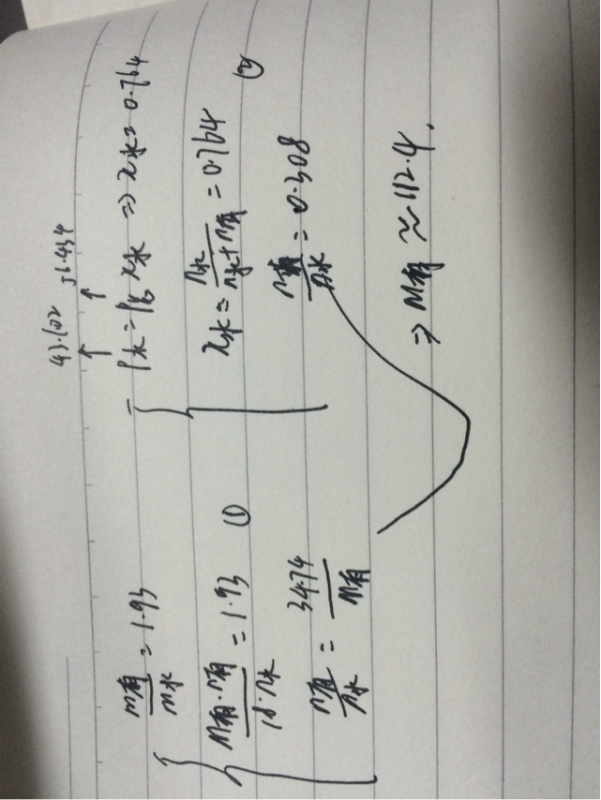 m有/m水 = 1.93
M有·n有/18·n水 = 1.93 ①
n有/n水 = 34.74/M有
43.102 56.434
↑ ↑
= P水 = P总 x水 ⇒ x水 = 0.764
x水 = n水/n水+n有 = 0.764 ②
n有/n水 = 0.308
⇒ M有 ≈ 112.4.